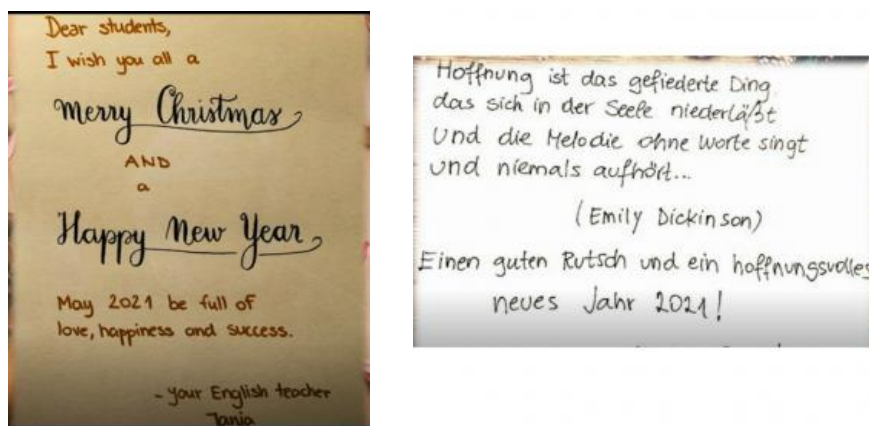 Dear students,
I wish you all a
Merry Christmas
AND
a
Happy New Year
May 2021 be full of
love, happiness and success.
- your English teacher
Tanja
Hoffnung ist das gefiederte Ding
das sich in der Seele niederläßt
Und die Melodie ohne Worte singt
und niemals aufhört...
(Emily Dickinson)
Einen guten Rutsch und ein hoffnungsvolles
neues Jahr 2021!